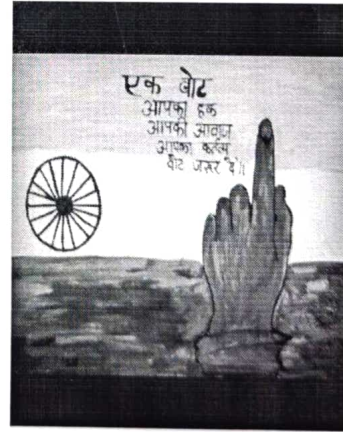 एक वोट
आपका हक
आपकी आवाज
आपका कर्तव्य
वोट जरूर दें।